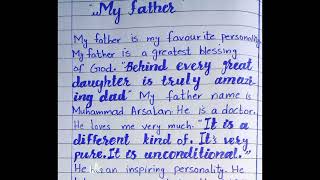 "My father"
My father is my favourite personality
My father is a greatest blessing
of God. "Behind every great
daughter is truly amaz-
ing dad" My father name is
Muhammad Arsalan. He is a doctor.
He loves me very much. "It is a
different kind of. It's very
pure. It is unconditional."
He is an inspiring personality. He